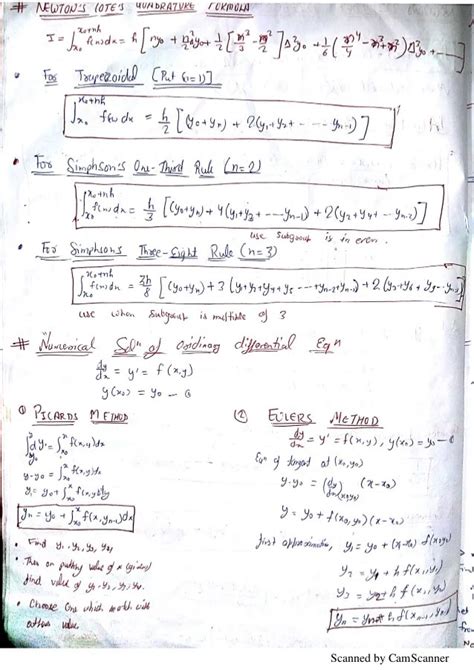 # NEWTON'S COTE'S QUADRATURE FORMULA
I = ∫_{x₀}^{x₀+nh} f(x) dx = h [ ny₀ + n²/2 Δy₀ + 1/2 [n³/3 - n²/2] Δ²y₀ + 1/6 (n⁴/4 - n³ + n²) Δ³y₀ + ---- ]
• For Trapezoidal [Put n=1]
∫_{x₀}^{x₀+nh} f(x) dx = h/2 [(y₀+yₙ) + 2(y₁+y₂+ ---- yₙ₋₁)]
• For Simphson's One-Third Rule (n=2)
∫_{x₀}^{x₀+nh} f(x) dx = h/3 [(y₀+yₙ) + 4(y₁+y₃+ ---- yₙ₋₁) + 2(y₂+y₄+ -- yₙ₋₂)]
use Subgaout is in even.
• For Simphsons Three-Eight Rule (n=3)
∫_{x₀}^{x₀+nh} f(x) dx = 3h/8 [(y₀+yₙ) + 3(y₁+y₂+y₄+y₅ ---- +yₙ₋₂+yₙ₋₁) + 2(y₃+y₆+y₉--yₙ₋₃)]
use when Subgaout is multiple of 3
# Numerical Solⁿ of ordinary differential Eqⁿ
dy/dx = y' = f(x,y)
y(x₀) = y₀ -
① PICARDS METHOD
∫dy = ∫f(x,y)dx
y-y₀ = ∫_{x₀}^{x} f(x,y)dx
y₁ = y₀ + ∫_{x₀}^{x} f(x,y₀)dx
yₙ = y₀ + ∫_{x₀}^{x} f(x,yₙ₋₁)dx
• Find y₁, y₂, y₃, y₄
• Then on putting value of x (given)
find value of y₁, y₂, y₃, y₄
• Choose one which match with
value
② EULERS METHOD
dy/dx = y' = f(x,y), y(x₀) = y₀ -
Eqⁿ of tangent at (x₀,y₀)
y-y₀ = (dy/dx)_{(x₀,y₀)} (x-x₀)
y = y₀ + f(x₀,y₀)(x-x₀)
first approximation, y₁ = y₀ + (x₁-x₀) f(x₀,y₀)
y₂ = y₁ + h f(x₁,y₁)
yₙ = yₙ₋₁ + h f(xₙ₋₁, yₙ₋₁)
Scanned by CamScanner